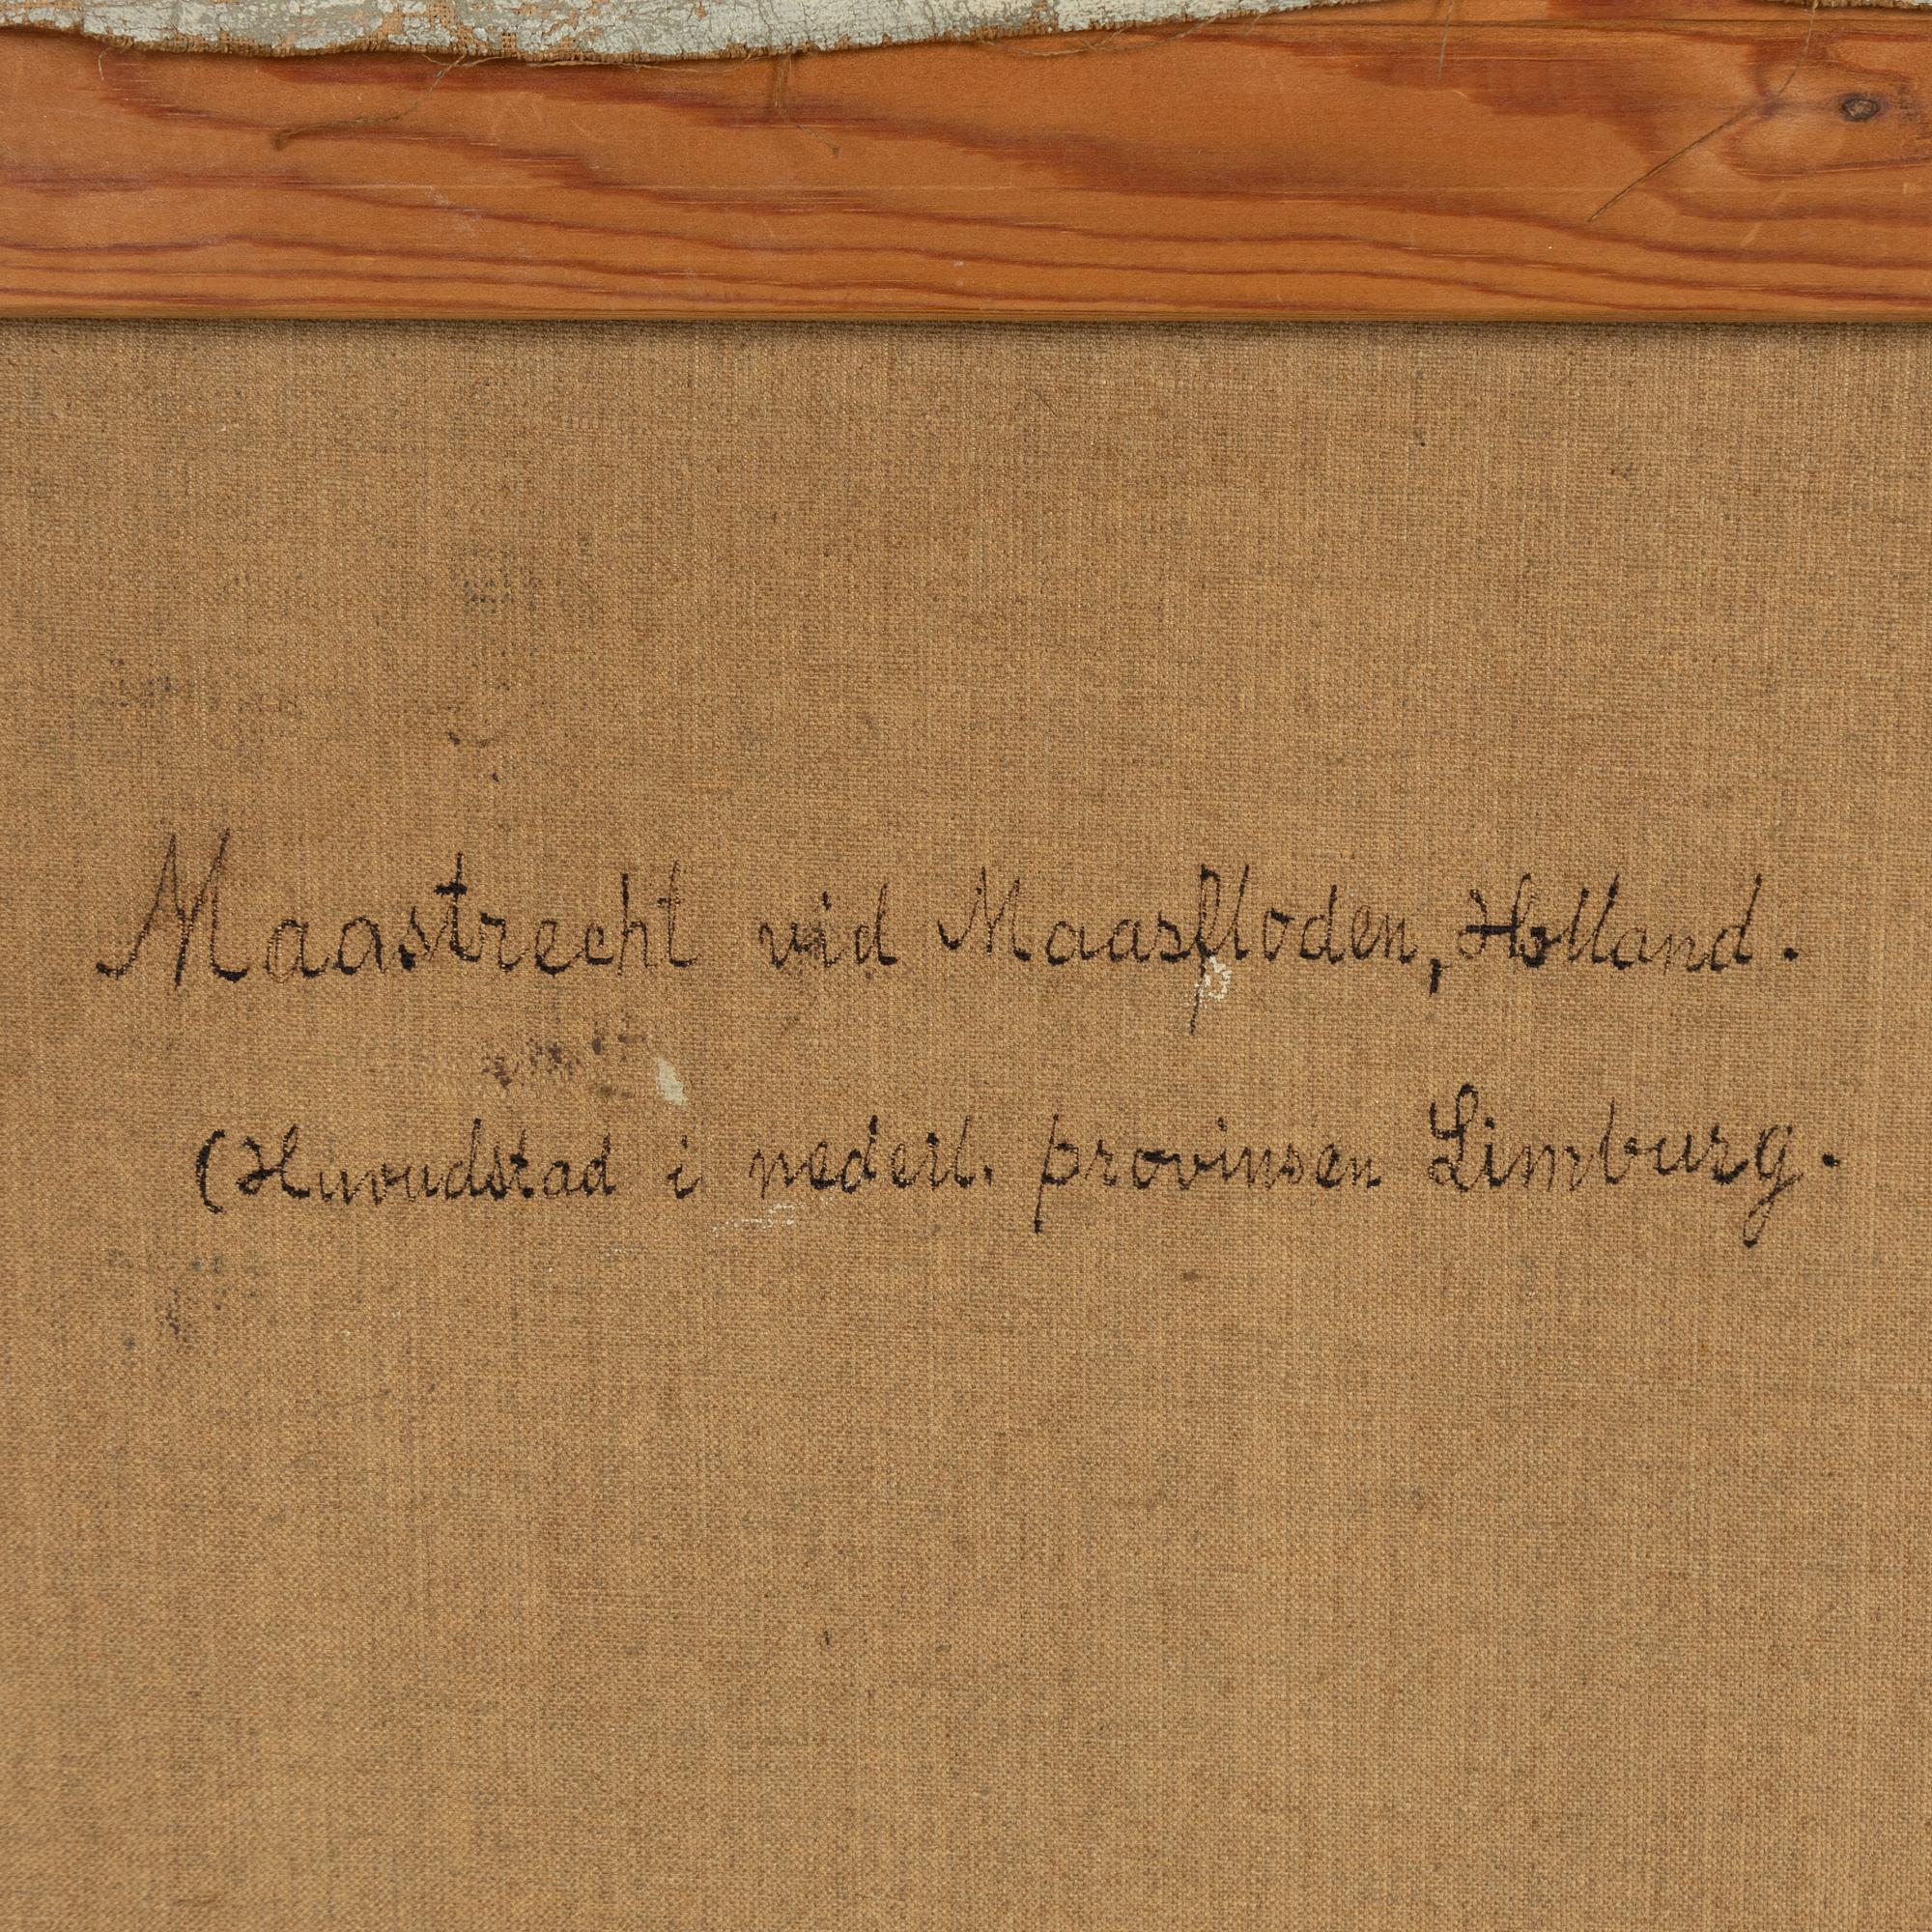 Maastrecht vid Maasfloden, Holland.
(Huvudstad i nederl. provinsen Limburg.